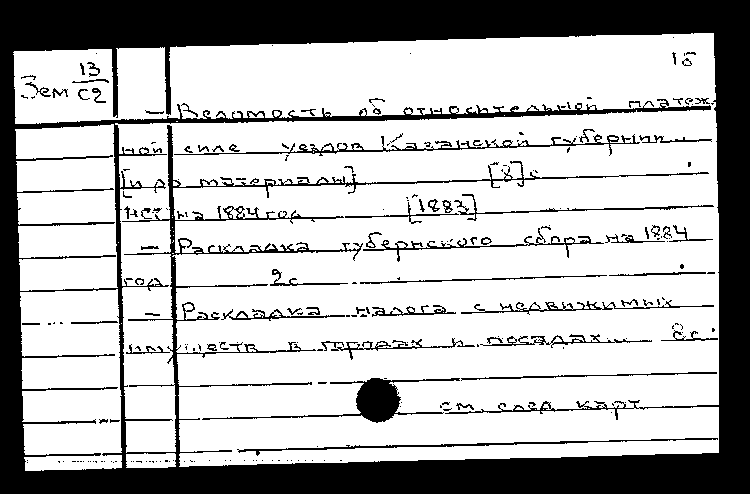 1б
Зем 13/С2
— Ведомость об относительной платеж-
ной силе уездов Казанской губернии..
[и др материалы] [8]с
нет на 1884 год. [1883]
— Раскладка губернского сбора на 1884
год 2с
— Раскладка налога с недвижимых
имуществ в городах и посадах... 8с.
см. след карт